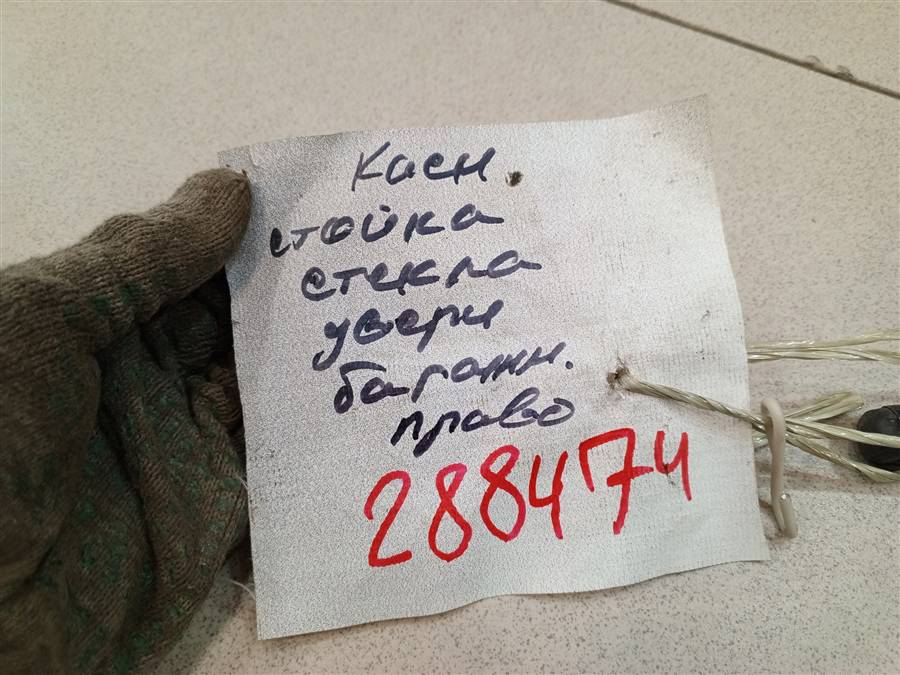 Касн.
стойка
стекла
двери
багажн.
право
288474